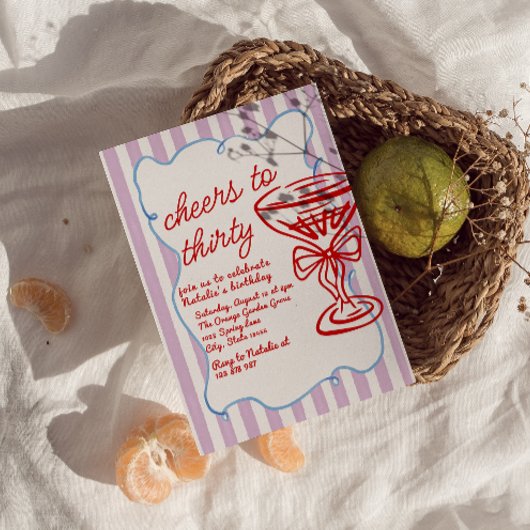 cheers to
thirty
join us to celebrate
Natalie's birthday
Saturday, August 12 at 6pm
The Orange Garden Grove
1023 Spring Lane
City, State 12034
Rsvp to Natalie at
123 878 987